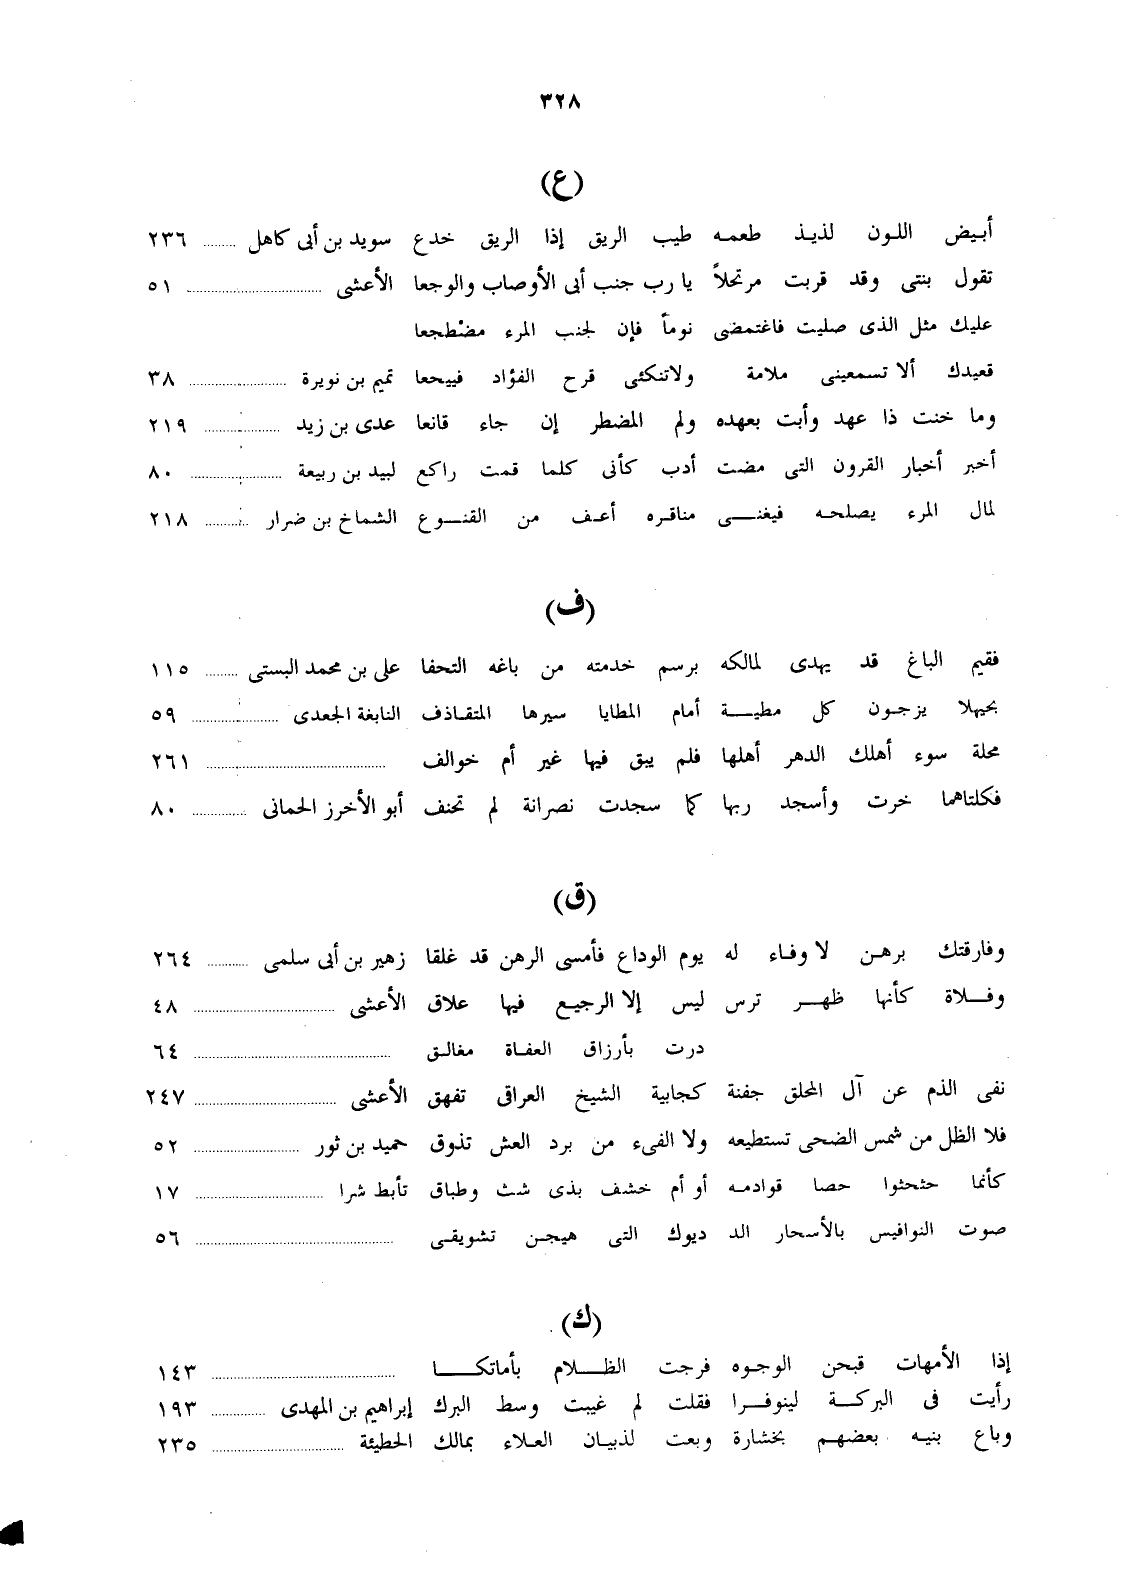 ٣٢٨
(ع)
أبيض اللون لذيذ طعمه طيب الريق إذا الريق خدع سويد بن أبى كاهل ........ ٢٣٦
تقول بنتى وقد قربت مرتحلاً يا رب جنب أبى الأوصاب والوجعا الأعشى ........ ٥١
عليك مثل الذى صليت فاغتمضى نوماً فإن لجنب المرء مضْطجعا
قعيدك ألا تسمعينى ملامة ولاتنكئى قرح الفؤاد فييجعا تميم بن نويرة ........ ٣٨
وما خنت ذا عهد وأبت بعهده ولم المضطر إن جاء قانعا عدى بن زيد ........ ٢١٩
أخبر أخبار القرون التى مضت أدب كأنى كلما قمت راكع لبيد بن ربيعة ........ ٨٠
لمال المرء يصلحه فيغنى مناقره أعف من القنوع الشماخ بن ضرار ........ ٢١٨
(ف)
فقيم الباغ قد يهدى لمالكه برسم خدمته من باغه التحفا على بن محمد البستى ........ ١١٥
بحيهلا يزجون كل مطية أمام المطايا سيرها المتقاذف النابغة الجعدى ........ ٥٩
محلة سوء أهلك الدهر أهلها فلم يبق فيها غير أم خوالف ........ ٢٦١
فكلتاهما خرت وأسجد ربها كما سجدت نصرانة لم تحنف أبو الأخرز الحمانى ........ ٨٠
(ق)
وفارقتك برهن لا وفاء له يوم الوداع فأمسى الرهن قد غلقا زهير بن أبى سلمى ........ ٢٦٤
وفلاة كأنها ظهر ترس ليس إلا الرجيع فيها علاق الأعشى ........ ٤٨
درت بأرزاق العفاة مغالق ........ ٦٤
نفى الذم عن آل المحلق جفنة كجابية الشيخ العراقى تفهق الأعشى ........ ٢٤٧
فلا الظل من شمس الضحى تستطيعه ولا الفىء من برد العش تذوق حميد بن ثور ........ ٥٢
كأنما حثحثوا حصا قوادمه أو أم خشف بذى شث وطباق تأبط شرا ........ ١٧
صوت النواقيس بالأسحار الد ديوك التى هيجن تشويقى ........ ٥٦
(ك)
إذا الأمهات قبحن الوجوه فرجت الظلام بأماتكا ........ ١٤٣
رأيت فى البركة لينوفرا فقلت لم غيبت وسط البرك إبراهيم بن المهدى ........ ١٩٣
وباع بنيه بعضهم بخشارة وبعت لذبيان العلاء بمالك الحطيئة ........ ٢٣٥